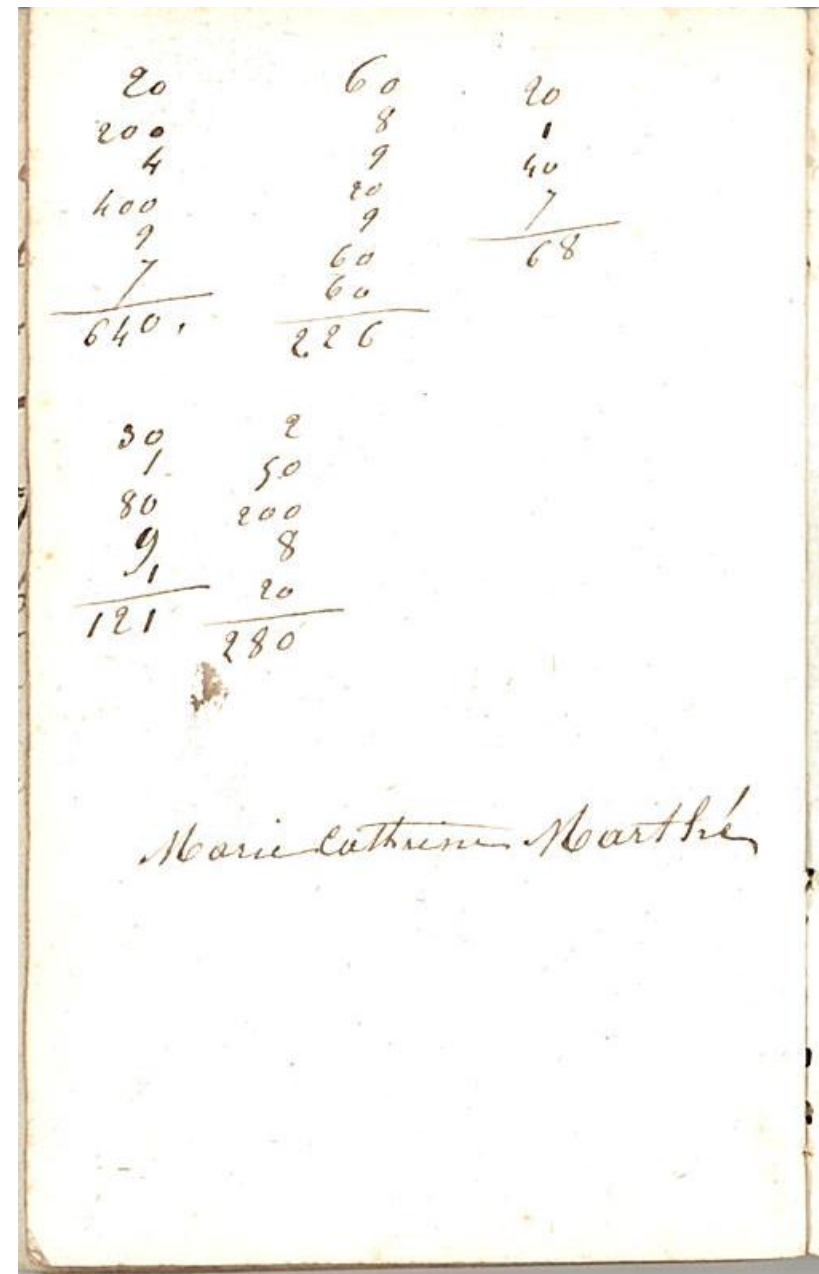 20
200
4
400
9
7
640.
60
8
9
20
9
60
60
226
20
1
40
7
68
30
1
80
9
1
121
2
50
200
8
20
280
Marie Cathrine Marthé